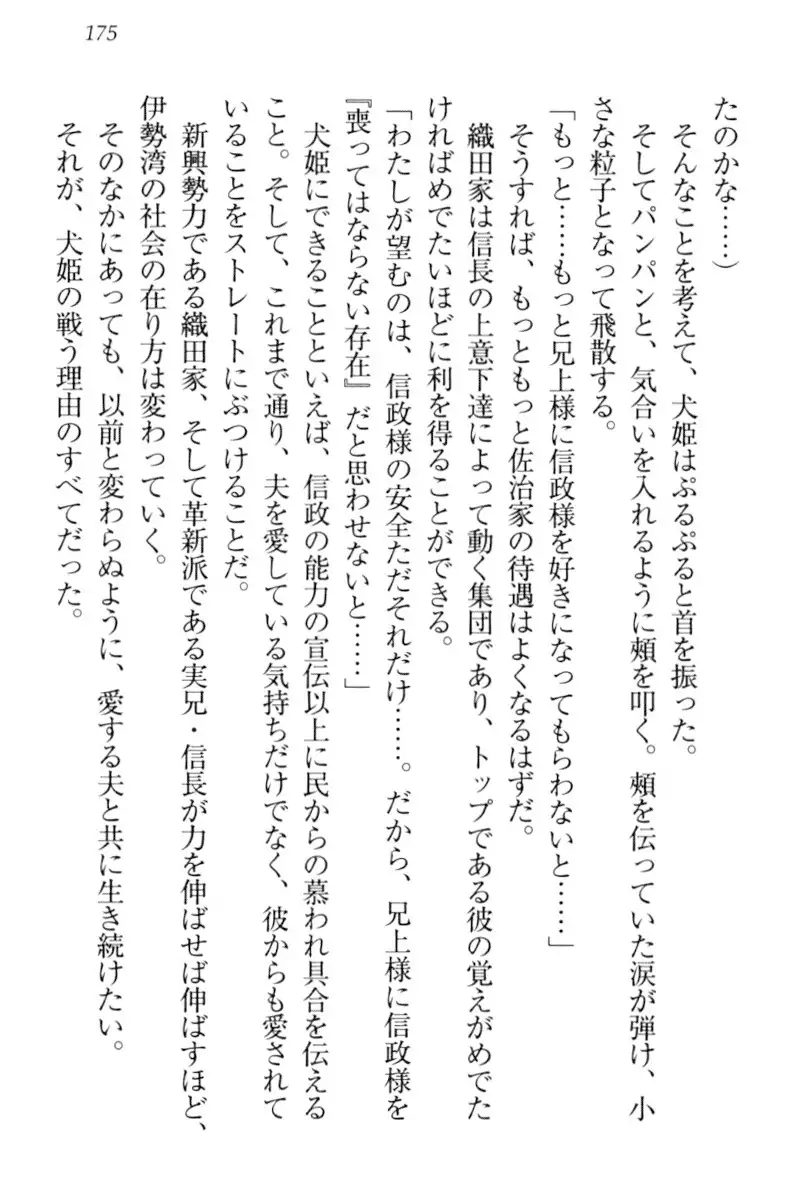 175
たのかな……）
　そんなことを考えて、犬姫はぷるぷると首を振った。
　そしてパンパンと、気合いを入れるように頰を叩く。頰を伝っていた涙が弾け、小
さな粒子となって飛散する。
「もっと……もっと兄上様に信政様を好きになってもらわないと……」
　そうすれば、もっともっと佐治家の待遇はよくなるはずだ。
　織田家は信長の上意下達によって動く集団であり、トップである彼の覚えがめでた
ければめでたいほどに利を得ることができる。
「わたしが望むのは、信政様の安全ただそれだけ……。だから、兄上様に信政様を
『喪ってはならない存在』だと思わせないと……」
　犬姫にできることといえば、信政の能力の宣伝以上に民からの慕われ具合を伝える
こと。そして、これまで通り、夫を愛している気持ちだけでなく、彼からも愛されて
いることをストレートにぶつけることだ。
　新興勢力である織田家、そして革新派である実兄・信長が力を伸ばせば伸ばすほど、
伊勢湾の社会の在り方は変わっていく。
　そのなかにあっても、以前と変わらぬように、愛する夫と共に生き続けたい。
　それが、犬姫の戦う理由のすべてだった。